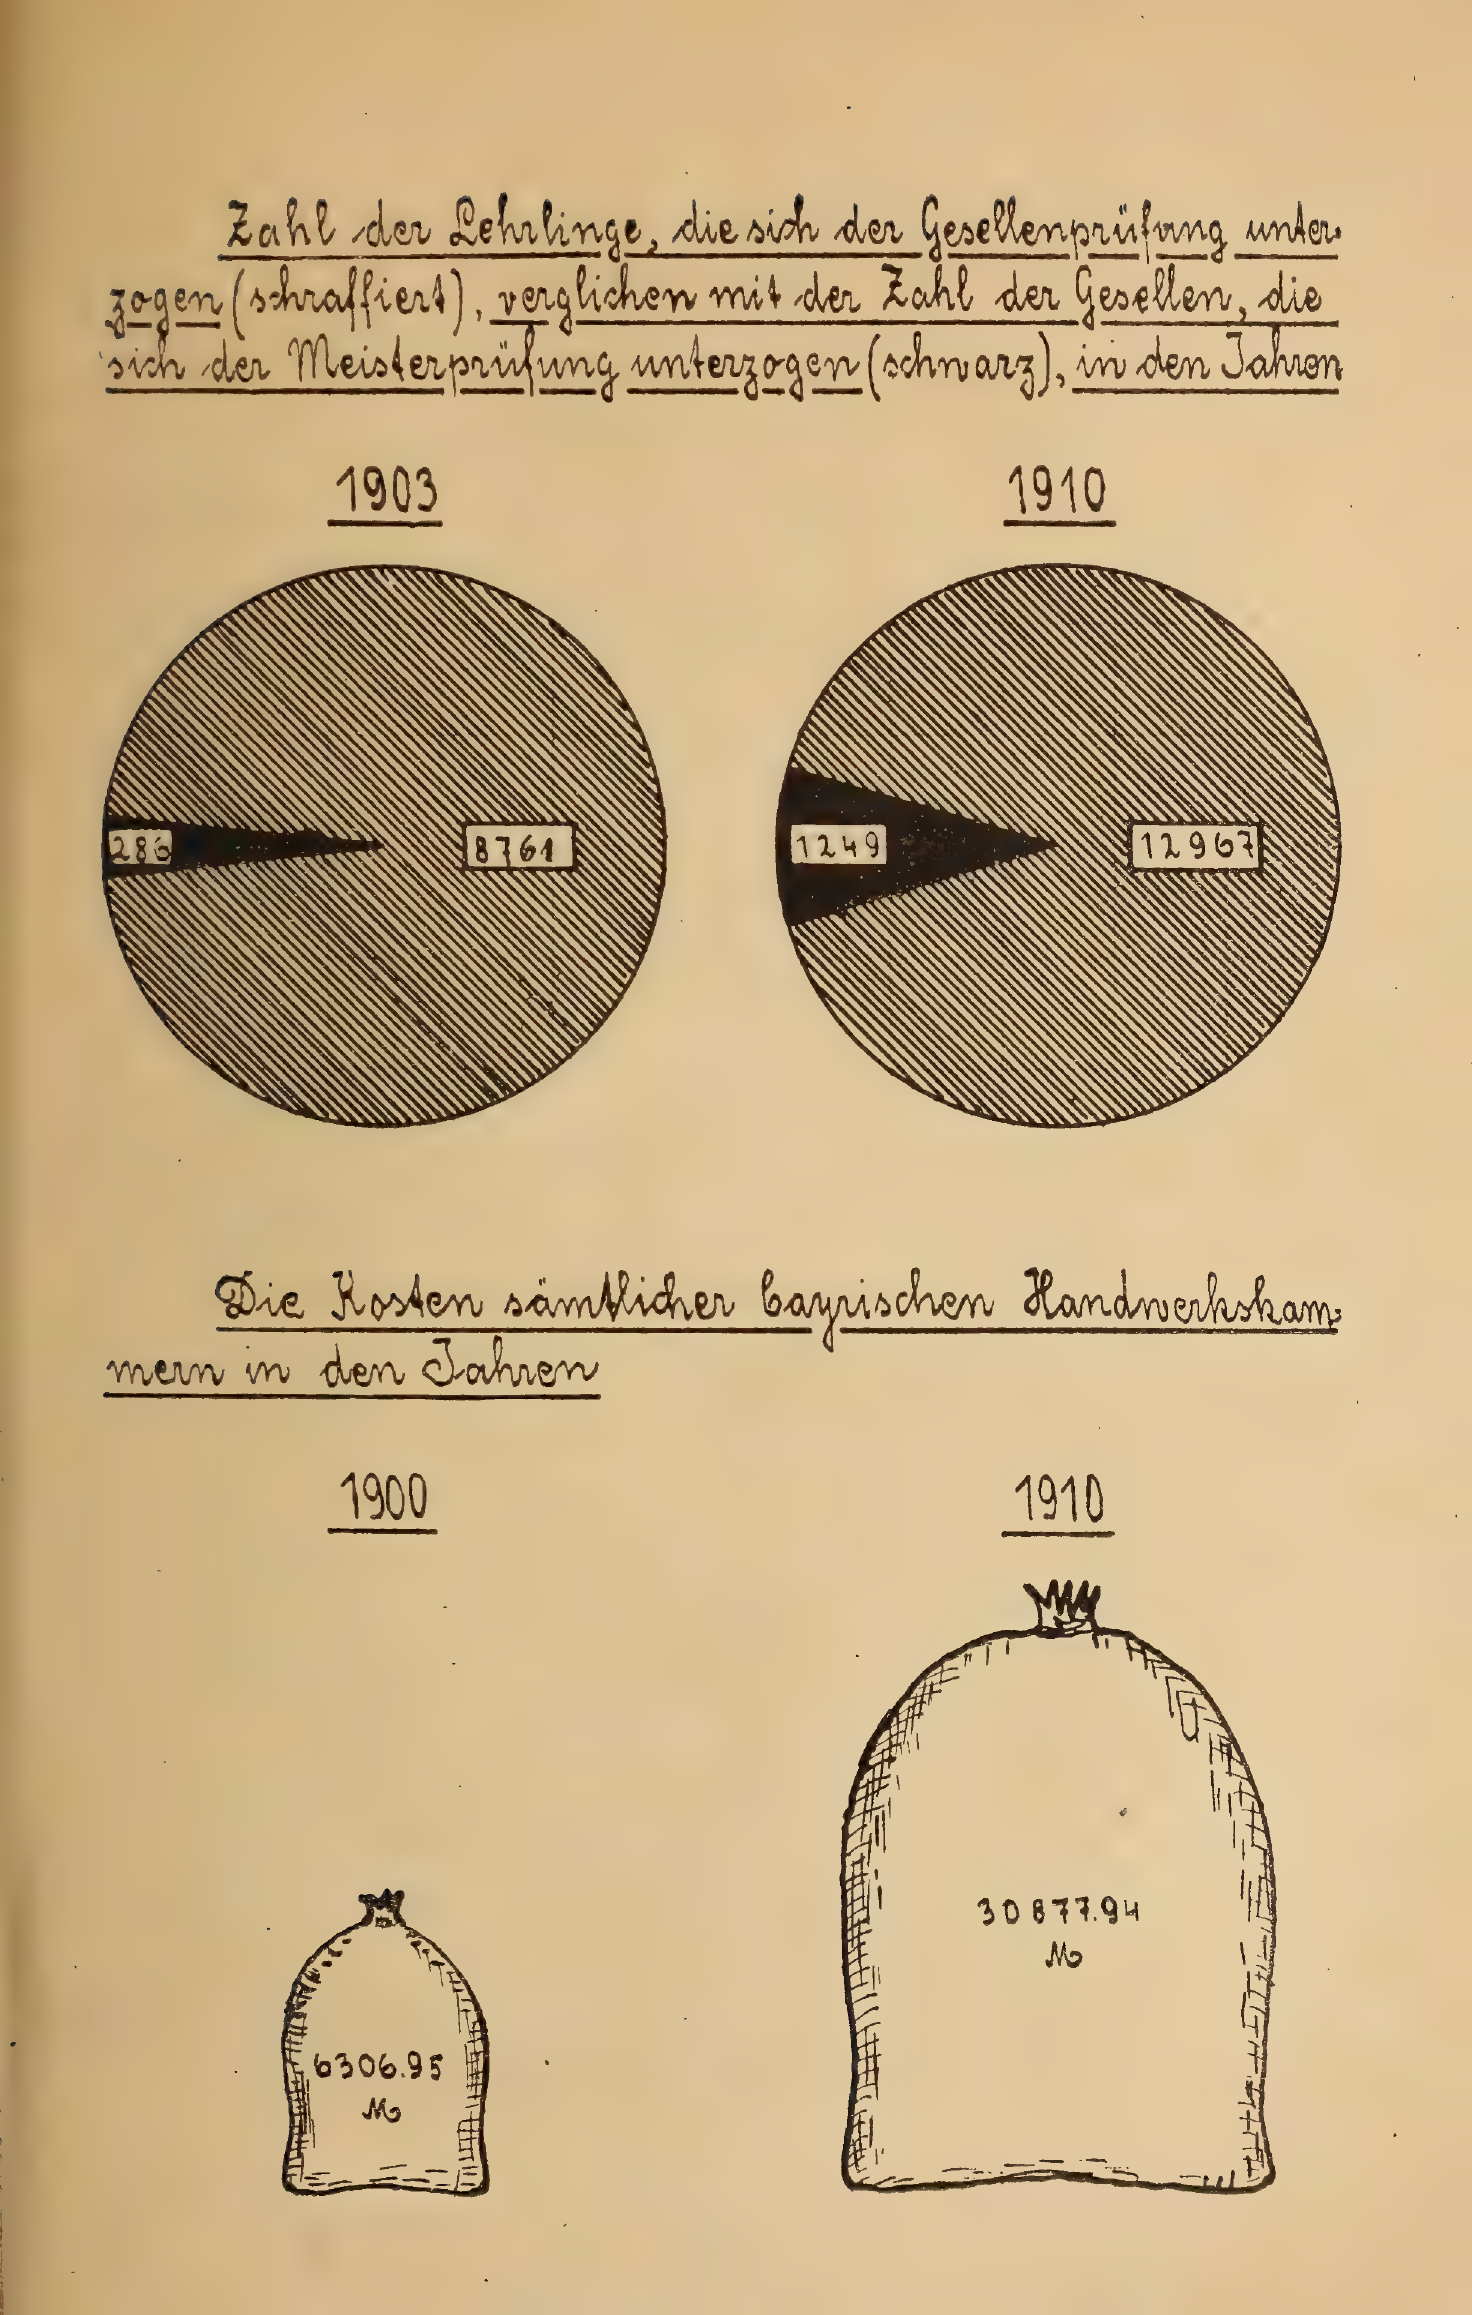 Zahl der Lehrlinge, die sich der Gesellenprüfung unter-
zogen (schraffiert), verglichen mit der Zahl der Gesellen, die
sich der Meisterprüfung unterzogen (schwarz), in den Jahren
1903 1910
286 8761 1249 12967
Die Kosten sämtlicher bayrischen Handwerkskam-
mern in den Jahren
1900 1910
30877.94
M
6306.95
M